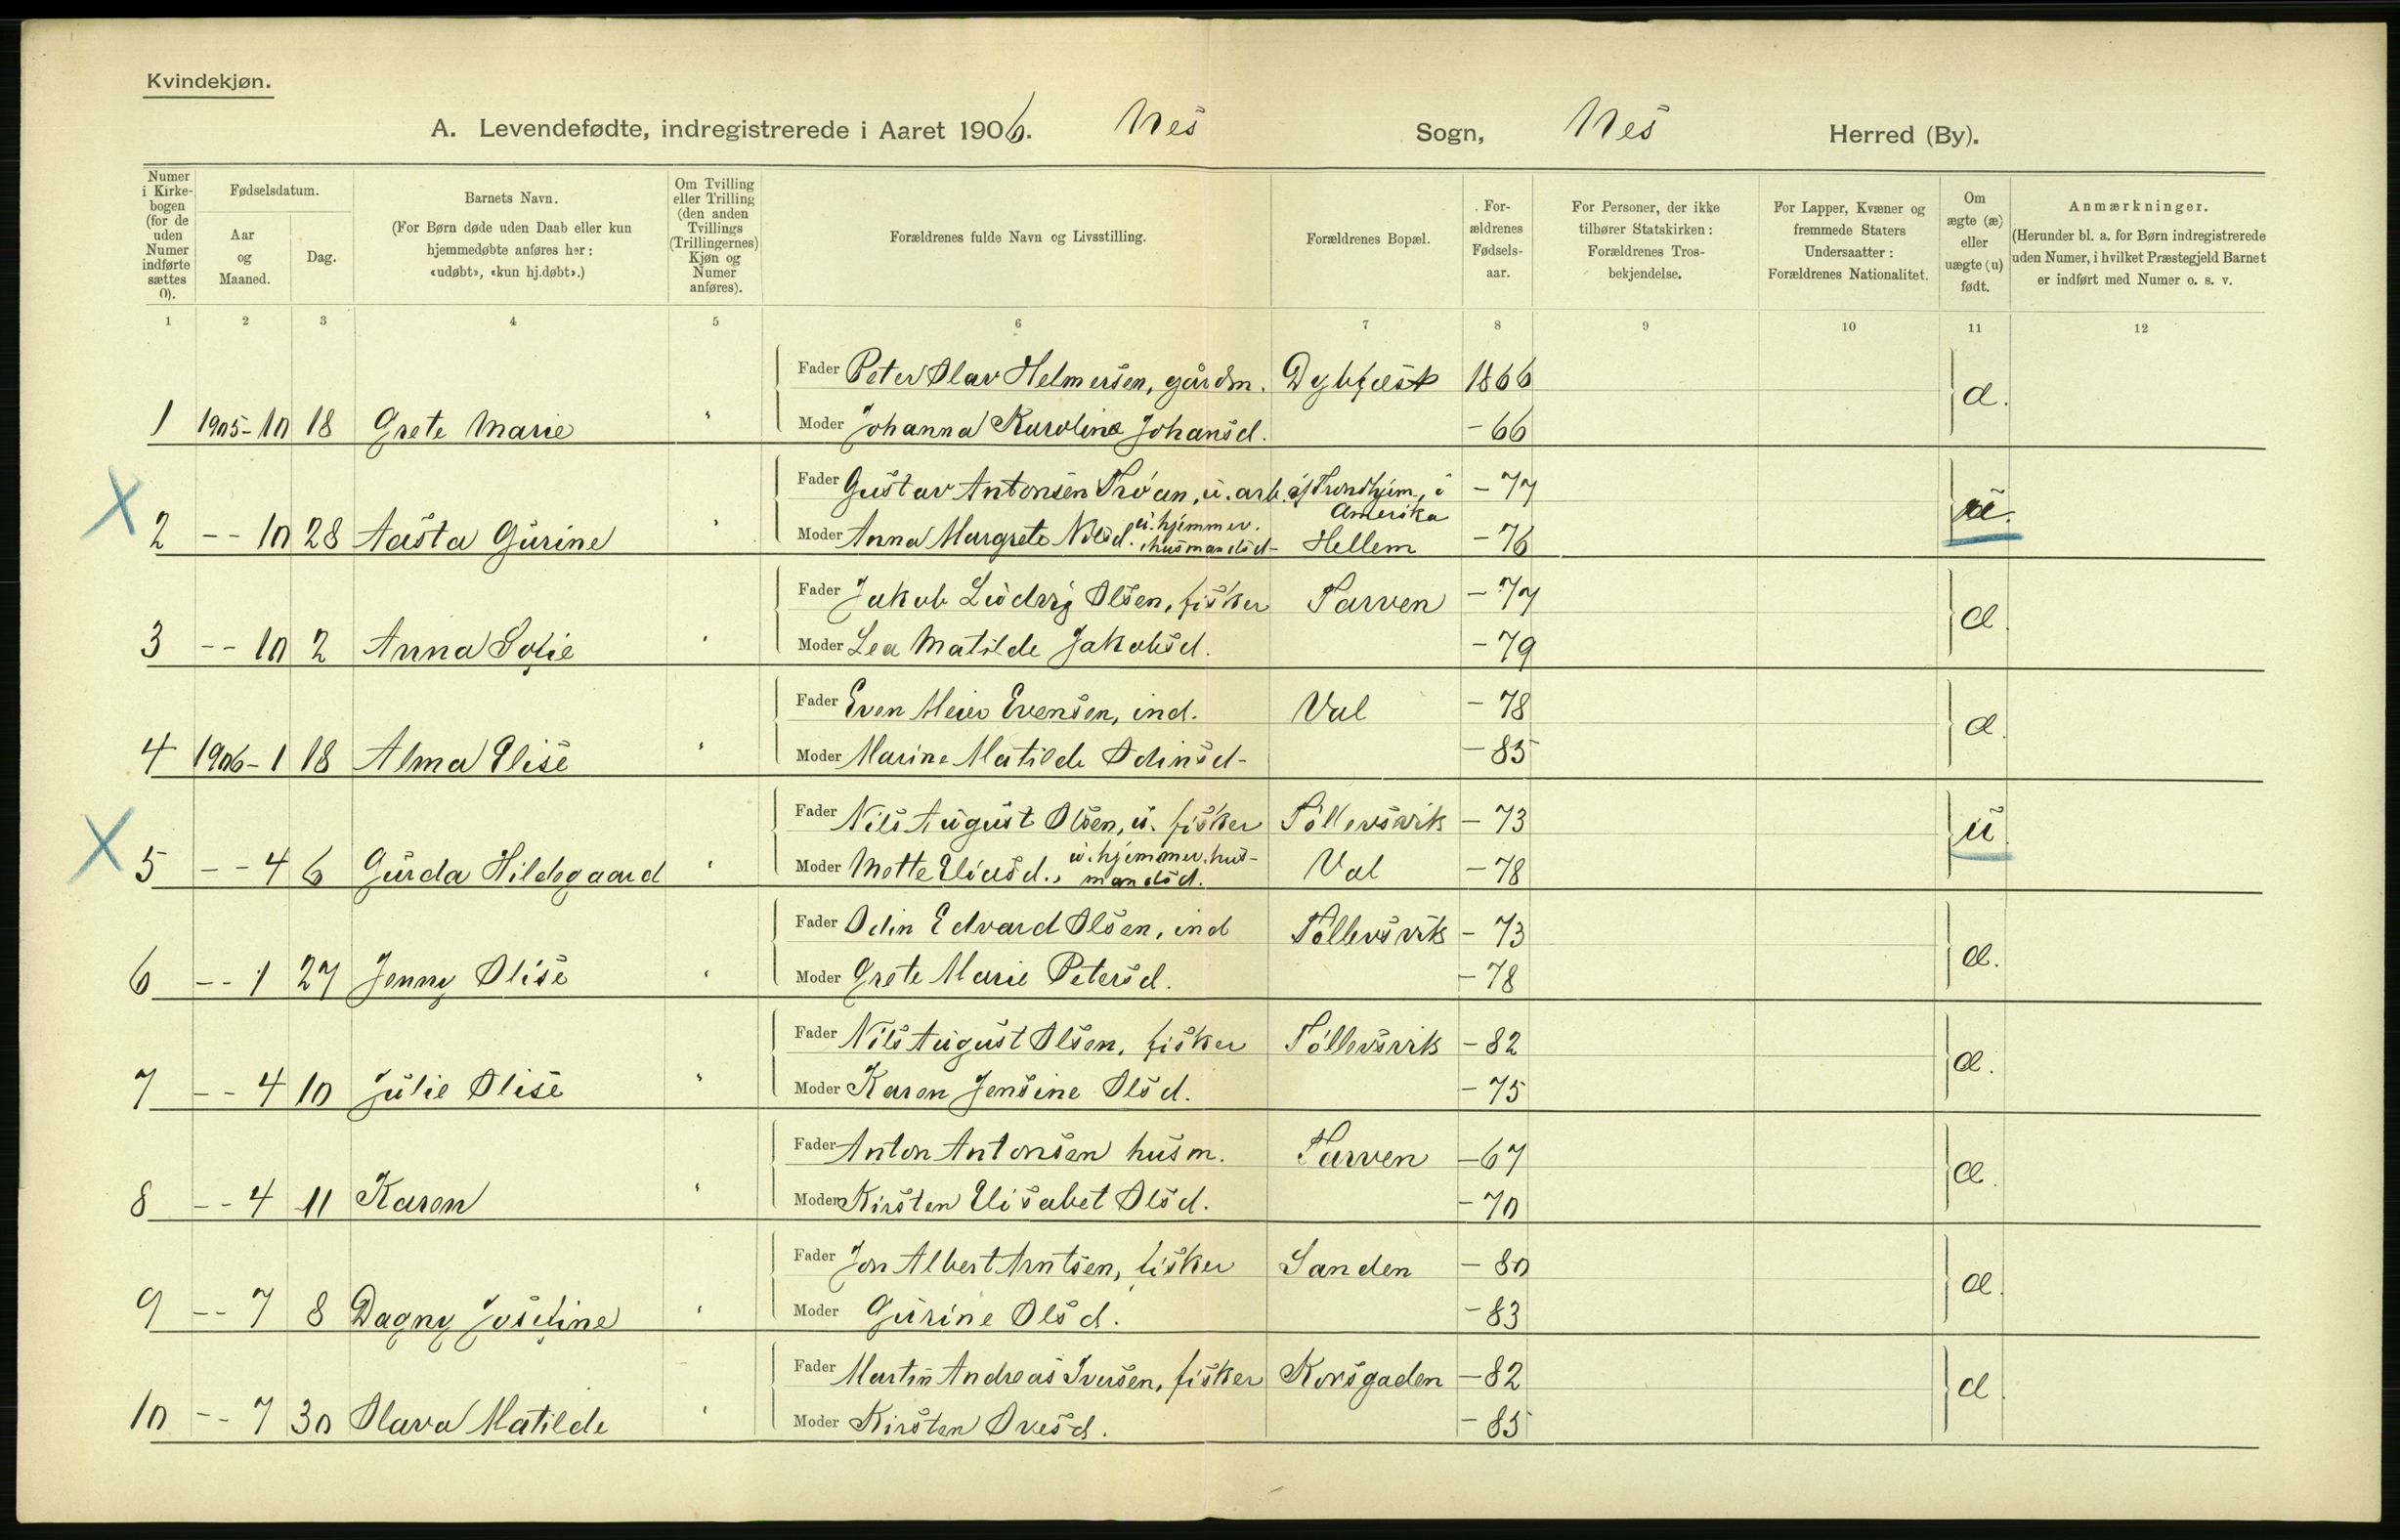 Kvindekjøn.
A. Levendefødte, indregistrerede i Aaret 1906. Nes Sogn, Nes Herred (By).
Numer i Kirkebogen (for de uden Numer indførte sættes 0).
Fødselsdatum.
Aar og Maaned.
Dag.
Barnets Navn.
(For Børn døde uden Daab eller kun hjemmedøbte anføres her: «udøbt», «kun hj.døbt».)
Om Tvilling eller Trilling (den anden Tvillings (Trillingernes) Kjøn og Numer anføres).
Forældrenes fulde Navn og Livsstilling.
Forældrenes Bopæl.
Forældrenes Fødselsaar.
For Personer, der ikke tilhører Statskirken: Forældrenes Trosbekjendelse.
For Lapper, Kvæner og fremmede Staters Undersaatter: Forældrenes Nationalitet.
Om ægte (æ) eller uægte (u) født.
Anmærkninger.
(Herunder bl. a. for Børn indregistrerede uden Numer, i hvilket Præstegjeld Barnet er indført med Numer o. s. v.
1 2 3 4 5 6 7 8 9 10 11 12
Fader Peter Olav Helmersen, gårdm. Dybfest 1866
1 1905-10 18 Grete Marie " Moder Johanna Karoline Johansd. -66 æ.
Fader Gustav Antonsen Tróan, u. arb. af Trondhjem, i Amerika -77
2 -- 10 28 Aasta Gurine " Moder Anna Margrete Nilsd. u. hjemmev. husmandsd- Hellem -76 u.
Fader Jakob Ludvig Olsen, fisker Tarven -77
3 -- 10 2 Anna Sofie " Moder Lea Matilde Jakobsd. -79 æ.
Fader Even Meier Evensen, ind. Val -78
4 1906-1 18 Alma Elise " Moder Marine Matilde Odinsd- -85 æ.
Fader Nils August Olsen, u. fisker Tóllevsvik -73
5 -- 4 6 Gurda Hildegaard " Moder Mette Eliasd., u. hjemmev. husmandsd. Val -78 u.
Fader Odin Edvard Olsen, ind Tóllevsvik -73
6 -- 1 27 Jenny Olise " Moder Grete Marie Petersd. -78 æ.
Fader Nils August Olsen, fisker Tóllevsvik -82
7 -- 4 10 Julie Olise " Moder Karen Jensine Olsd. -75 æ.
Fader Anton Antonsen husm. Tarven -67
8 -- 4 11 Karen " Moder Kirsten Elisabet Olsd. -70 æ.
Fader Jon Albert Arntsen, fisker Sanden -80
9 -- 7 8 Dagny Josefine " Moder Gurine Olsd. -83 æ.
Fader Martin Andreas Iversen, fisker Korsgaden -82
10 -- 7 30 Olava Matilde " Moder Kirsten Ovesd. -85 æ.